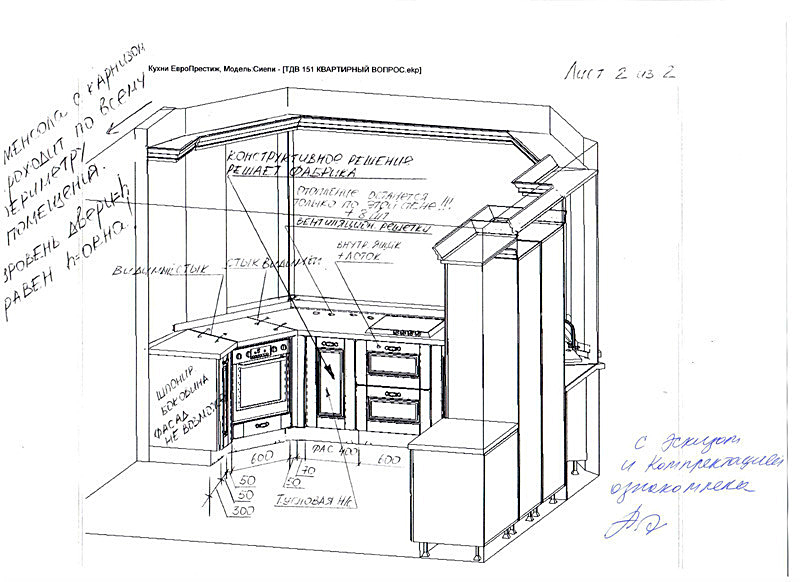 Кухни ЕвроПрестиж, Модель:Сиепи - [ТДВ 151 КВАРТИРНЫЙ ВОПРОС.ekp]
Лист 2 из 2
МЕНСОЛА С КАРНИЗОМ
РОХОДИТ ПО ВСЕМУ
ЕРИМЕТРУ
ПОМЕЩЕНИЯ.
УРОВЕНЬ ДВЕРИ=h
РАВЕН h=ОКНА
КОНСТРУКТИВНОЕ РЕШЕНИЕ
РЕШАЕТ ФАБРИКА
ОТОПЛЕНИЕ ОСТАНЕТСЯ
ТОЛЬКО ПО ЭТОЙ СТЕНЕ!!!
+ 8 ШТ
ВЕНТИЛЯЦИОН РЕШЕТКИ
ВНУТР ЯЩИК
+ ЛОТОК
ВИДИМЫЙ СТЫК
СТЫК ВИДИМЕН
ШПОНИР
БОКОВИНА
ФАСАД
НЕ ВОЗМОЖ
600
ФАС 400
600
70
50
50
50
300
ТУГЛОВАЯ НК
С Эскизом
и Комплектацией
ознакомлена